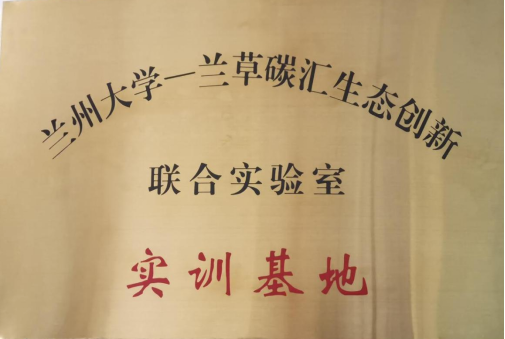 兰州大学—兰草碳汇生态创新
联合实验室
实训基地